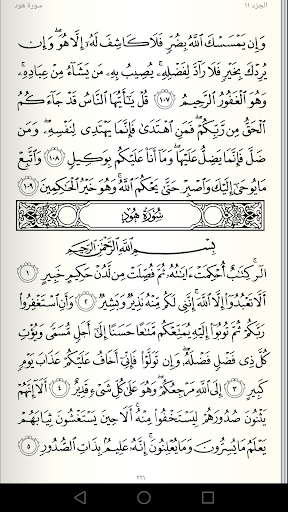 سورة هود الجزء ١١
وَإِن يَمْسَسْكَ ٱللَّهُ بِضُرٍّ فَلَا كَاشِفَ لَهُۥٓ إِلَّا هُوَ ۖ وَإِن
يُرِدْكَ بِخَيْرٍ فَلَا رَآدَّ لِفَضْلِهِۦ ۚ يُصِيبُ بِهِۦ مَن يَشَآءُ مِنْ عِبَادِهِۦ ۚ
وَهُوَ ٱلْغَفُورُ ٱلرَّحِيمُ ١٠٧ قُلْ يَٰٓأَيُّهَا ٱلنَّاسُ قَدْ جَآءَكُمُ
ٱلْحَقُّ مِن رَّبِّكُمْ ۖ فَمَنِ ٱهْتَدَىٰ فَإِنَّمَا يَهْتَدِى لِنَفْسِهِۦ ۖ وَمَن
ضَلَّ فَإِنَّمَا يَضِلُّ عَلَيْهَا ۖ وَمَآ أَنَا۠ عَلَيْكُم بِوَكِيلٍ ١٠٨ وَٱتَّبِعْ
مَا يُوحَىٰٓ إِلَيْكَ وَٱصْبِرْ حَتَّىٰ يَحْكُمَ ٱللَّهُ ۚ وَهُوَ خَيْرُ ٱلْحَٰكِمِينَ ١٠٩
سُورَةُ هُودٍ
بِسْمِ ٱللَّهِ ٱلرَّحْمَٰنِ ٱلرَّحِيمِ
الٓر ۚ كِتَٰبٌ أُحْكِمَتْ ءَايَٰتُهُۥ ثُمَّ فُصِّلَتْ مِن لَّدُنْ حَكِيمٍ خَبِيرٍ ١
أَلَّا تَعْبُدُوٓا۟ إِلَّا ٱللَّهَ ۚ إِنَّنِى لَكُم مِّنْهُ نَذِيرٌ وَبَشِيرٌ ٢ وَأَنِ ٱسْتَغْفِرُوا۟
رَبَّكُمْ ثُمَّ تُوبُوٓا۟ إِلَيْهِ يُمَتِّعْكُم مَّتَٰعًا حَسَنًا إِلَىٰٓ أَجَلٍ مُّسَمًّى وَيُؤْتِ
كُلَّ ذِى فَضْلٍ فَضْلَهُۥ ۖ وَإِن تَوَلَّوْا۟ فَإِنِّىٓ أَخَافُ عَلَيْكُمْ عَذَابَ يَوْمٍ
كَبِيرٍ ٣ إِلَى ٱللَّهِ مَرْجِعُكُمْ ۖ وَهُوَ عَلَىٰ كُلِّ شَىْءٍ قَدِيرٌ ٤ أَلَآ إِنَّهُمْ
يَثْنُونَ صُدُورَهُمْ لِيَسْتَخْفُوا۟ مِنْهُ ۚ أَلَا حِينَ يَسْتَغْشُونَ ثِيَابَهُمْ
يَعْلَمُ مَا يُسِرُّونَ وَمَا يُعْلِنُونَ ۚ إِنَّهُۥ عَلِيمٌۢ بِذَاتِ ٱلصُّدُورِ ٥
٢٢١